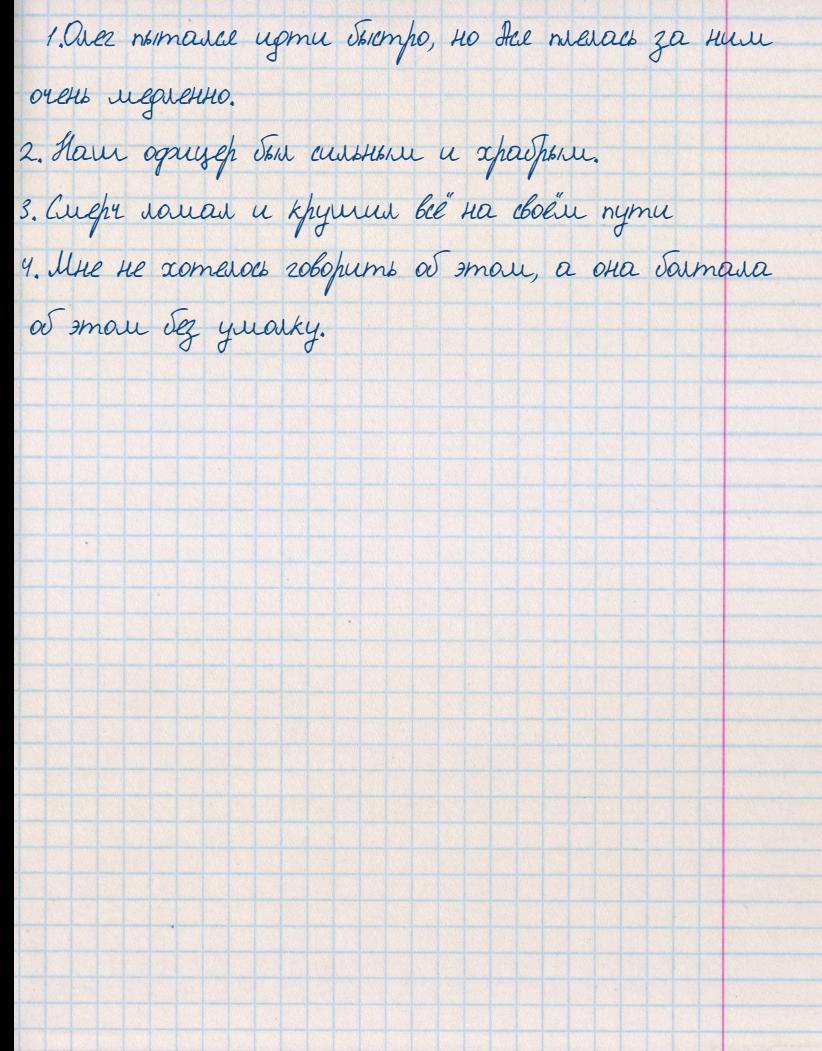 1. Олег пытался идти быстро, но Ася плелась за ним
очень медленно.
2. Наш офицер был сильным и храбрым.
3. Смерч ломал и крушил всё на своём пути
4. Мне не хотелось говорить об этом, а она болтала
об этом без умолку.